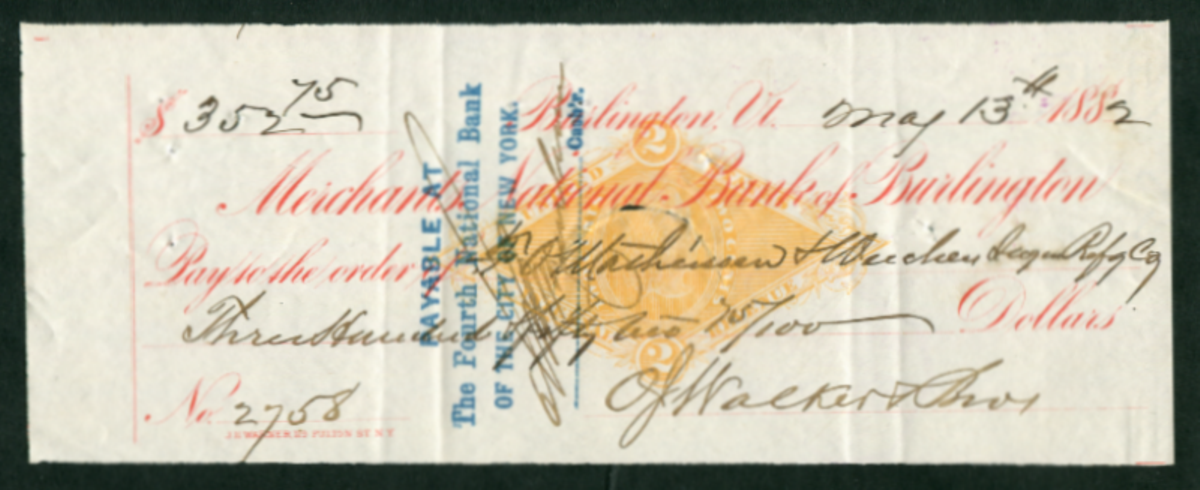 $ 352 75
Burlington, Vt. May 13th 1882
Merchants National Bank of Burlington
Pay to the order of & Wiechers Sugar Refg Co
Three Hundred fifty two 75/100 Dollars
No. 2758
O J Walker & Bros
PAYABLE AT
The Fourth National Bank
OF THE CITY OF NEW YORK.
Cash'r.
2
2